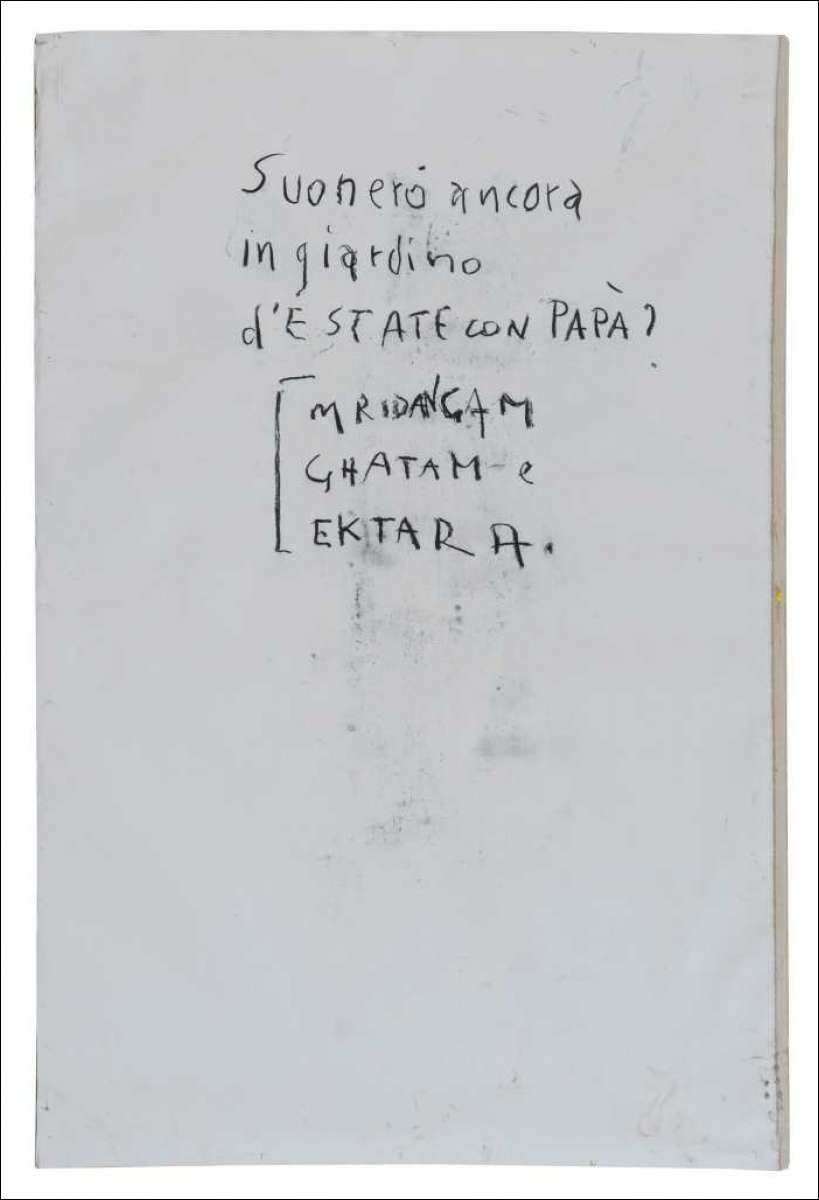 Suonerò ancora
in giardino
d'ESTATE CON PAPÀ?
MRIDANGAM
GHATAM e
EKTARA.